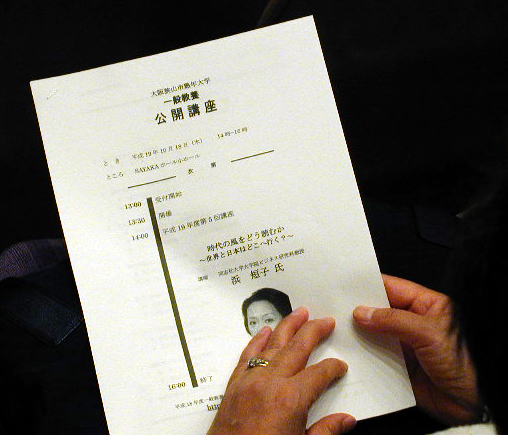 大阪狭山市熟年大学
一般教養
公開講座
とき 平成19年10月18日(木) 14時~16時
ところ SAYAKAホール小ホール
次第
13:00 受付開始
13:30 開播
14:00 平成19年度第5回講座
時代の風をどう読むか
~世界と日本はどこへ行く?~
講師 同志社大学大学院ビジネス研究科教授
浜 矩子 氏
16:00 終了
平成19年度一般教